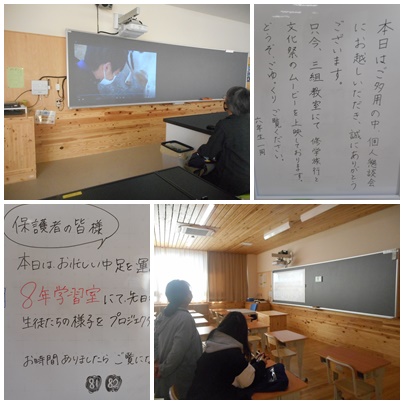 本日はご多用の中、個人懇談会
にお越しいただき、誠にありがとう
ございます。
只今、三組教室にて修学旅行と
文化祭のムービーを上映しております。
どうぞ、ごゆっくりご覧ください。
六年生一同
保護者の皆様
本日は、お忙しい中足を運
8年学習室にて、先日
生徒たちの様子をプロジェク
お時間ありましたらご覧にな
81 82